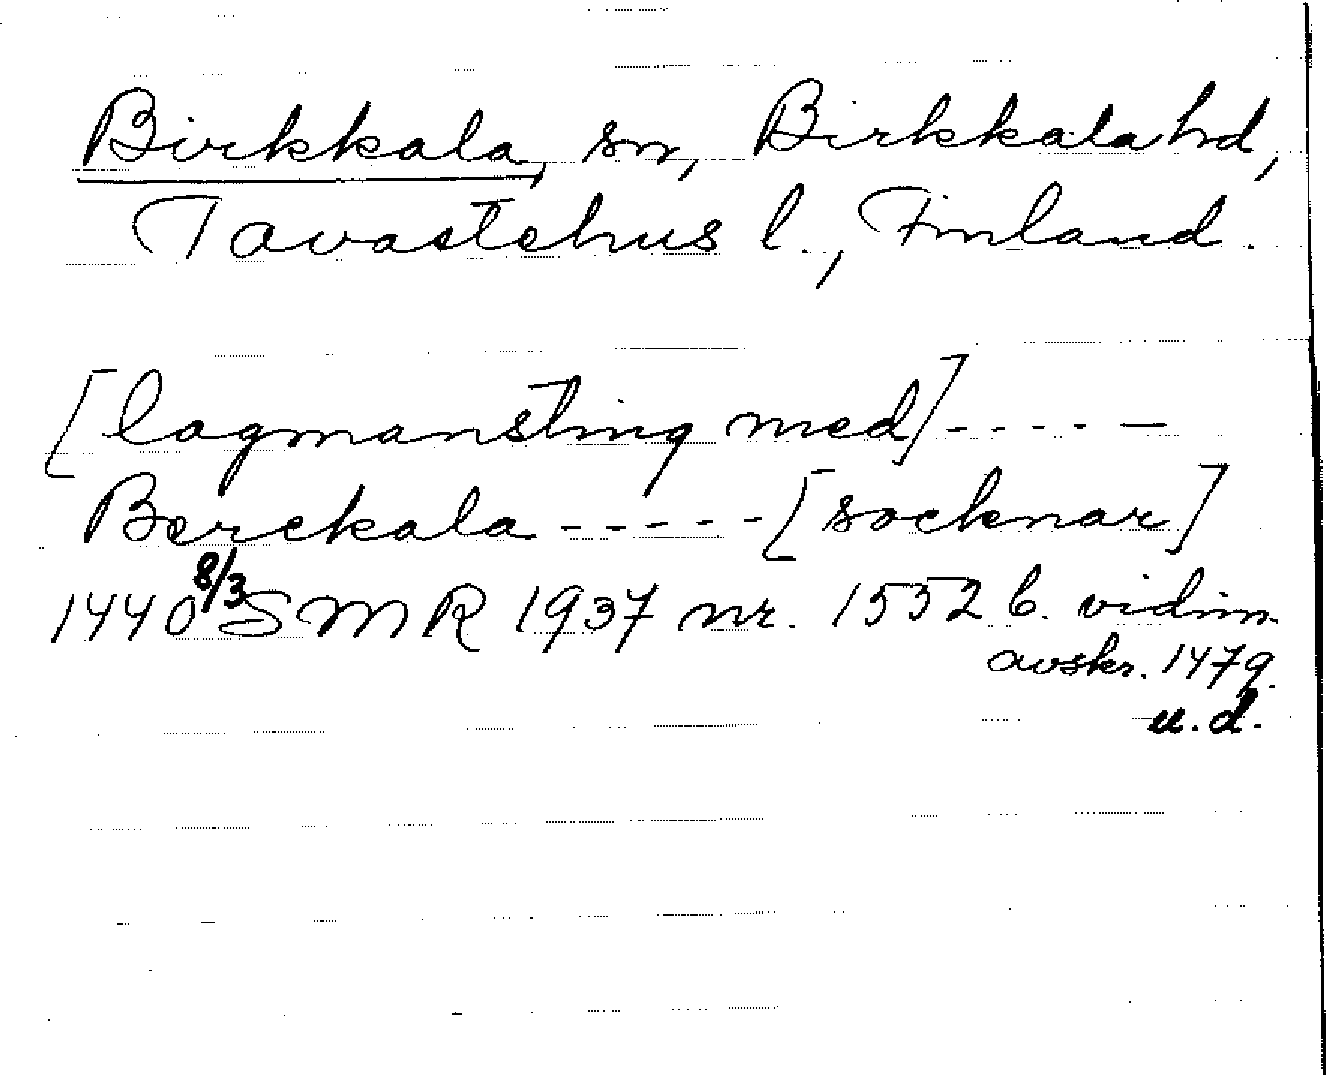 Birkkala, sn, Birkkala hd,
Tavastehus l., Finland.
[lagmansting med] - - - - -
Berckala - - - - - [socknar]
1440 8/3 SMR 1937 nr. 1552 b. vidim.
avskr. 1479.
u.d.